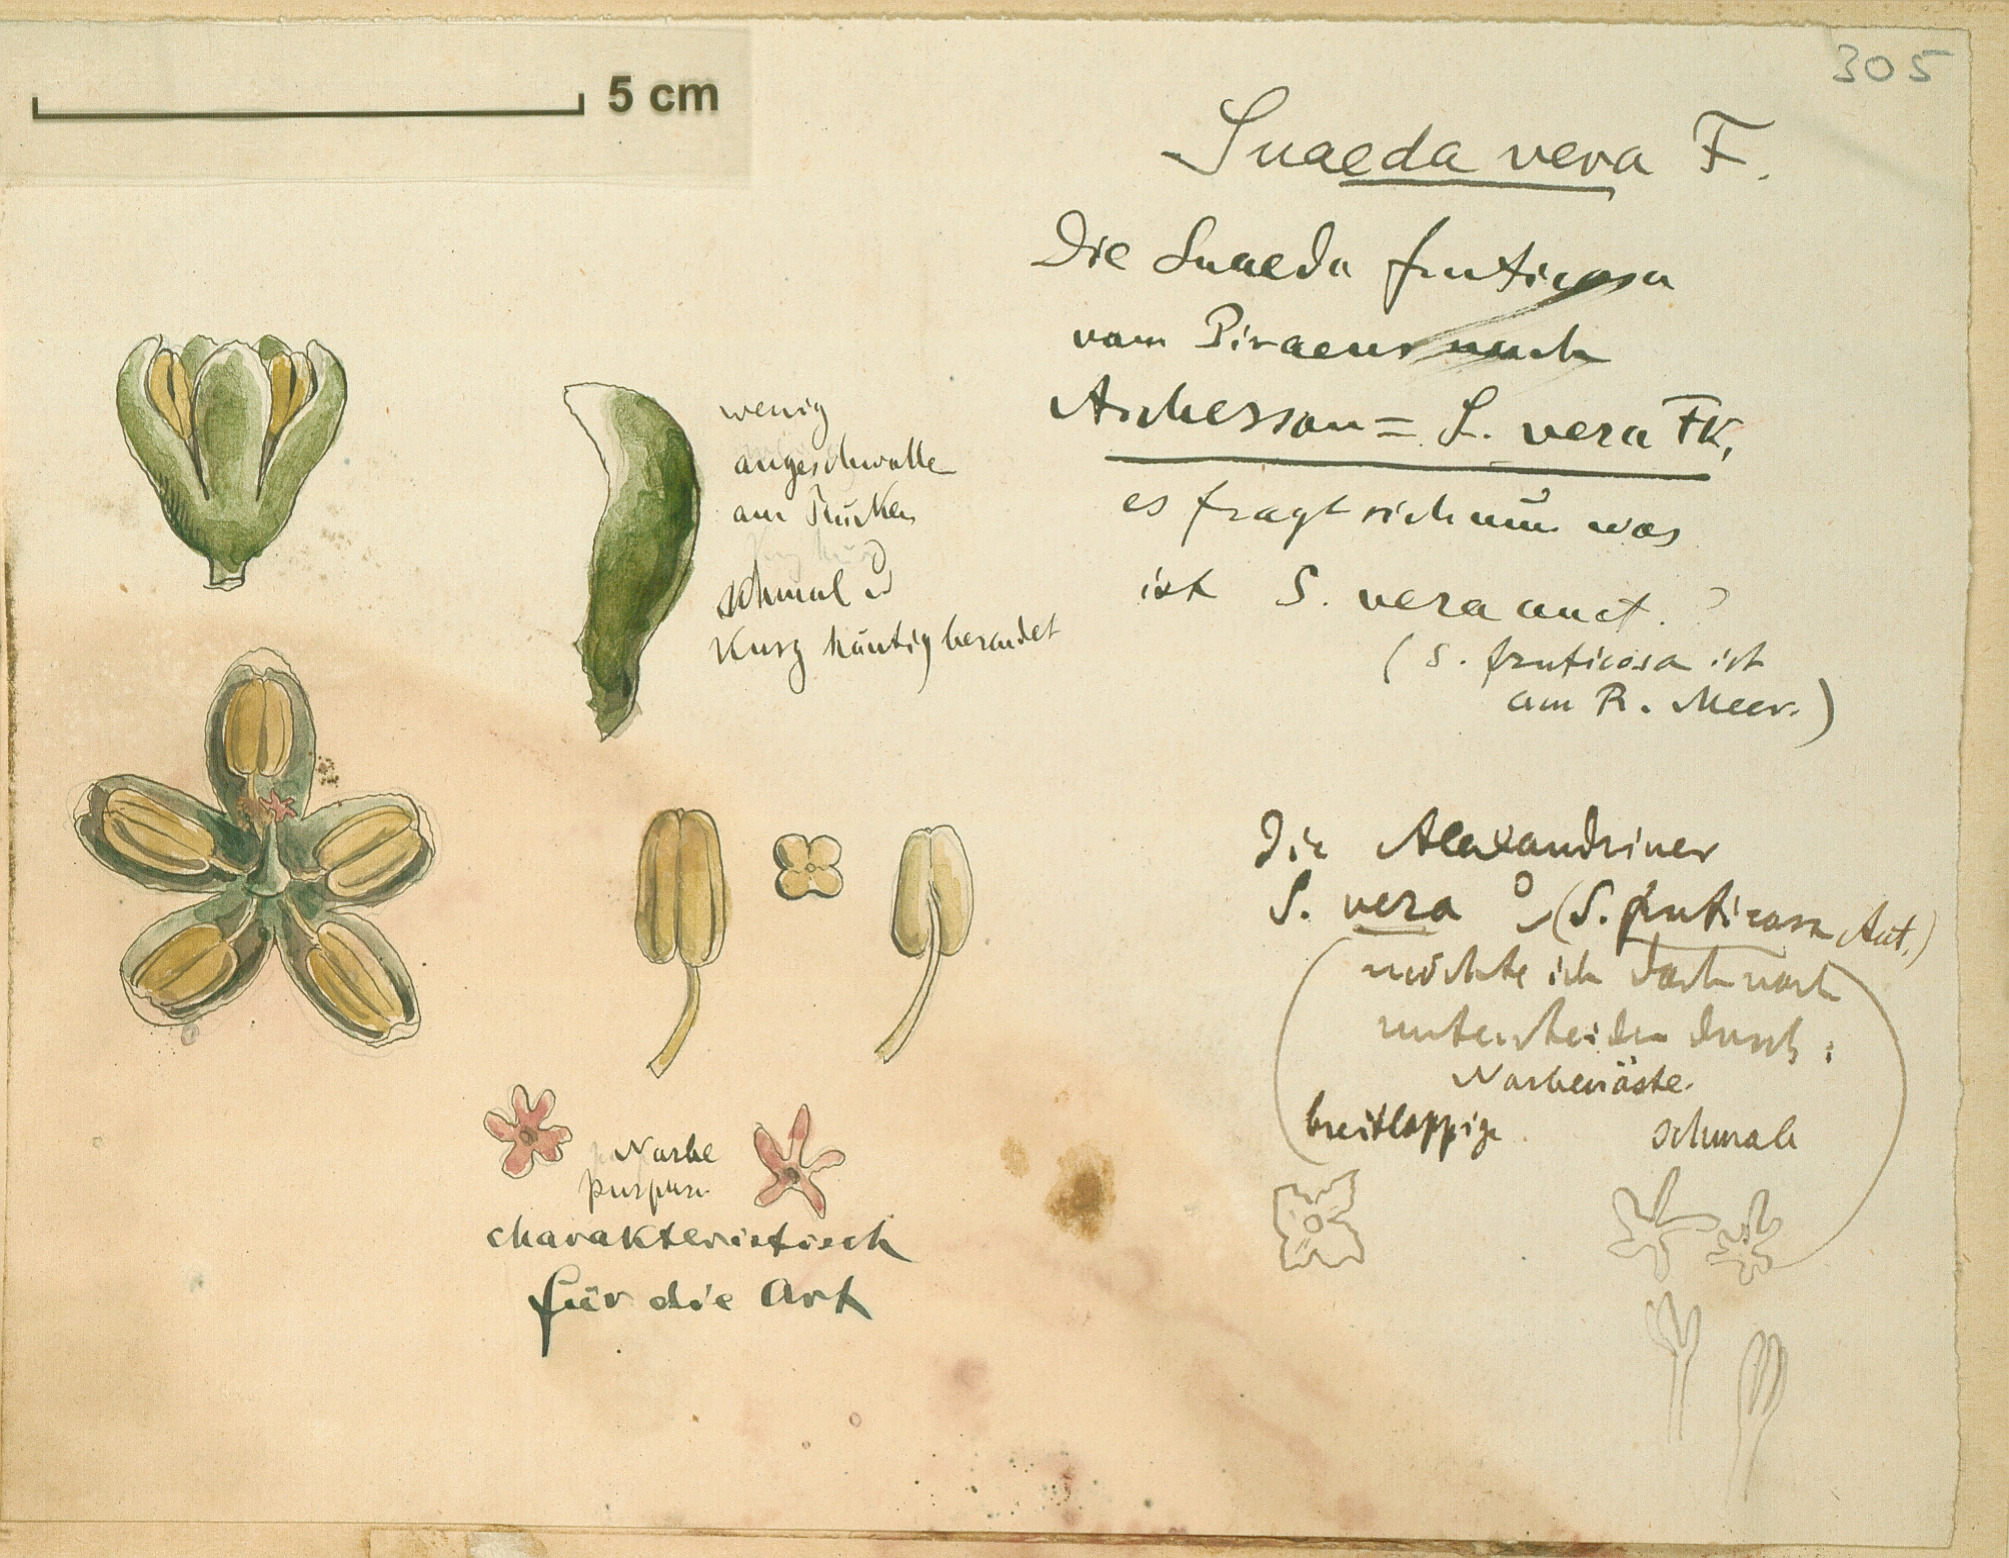 5 cm
305
Suaeda vera F.
Die Suaeda fruticosa
vom Piraeus nach
Ascherson = S. vera FK,
es fragt sich nun was
ist S. vera auct. ?
(S. fruticosa ist
am R. Meer.)
wenig
angeschwolle
am Rücken
schmal u
Kurz häutig berandet
Die Alexandriner
S. vera (S. fruticosa Aut.)
möchte ich doch noch
unterscheiden durch:
Narbenäste.
breitlappige schmale
Narbe
purpurn.
charakteristisch
für die Art